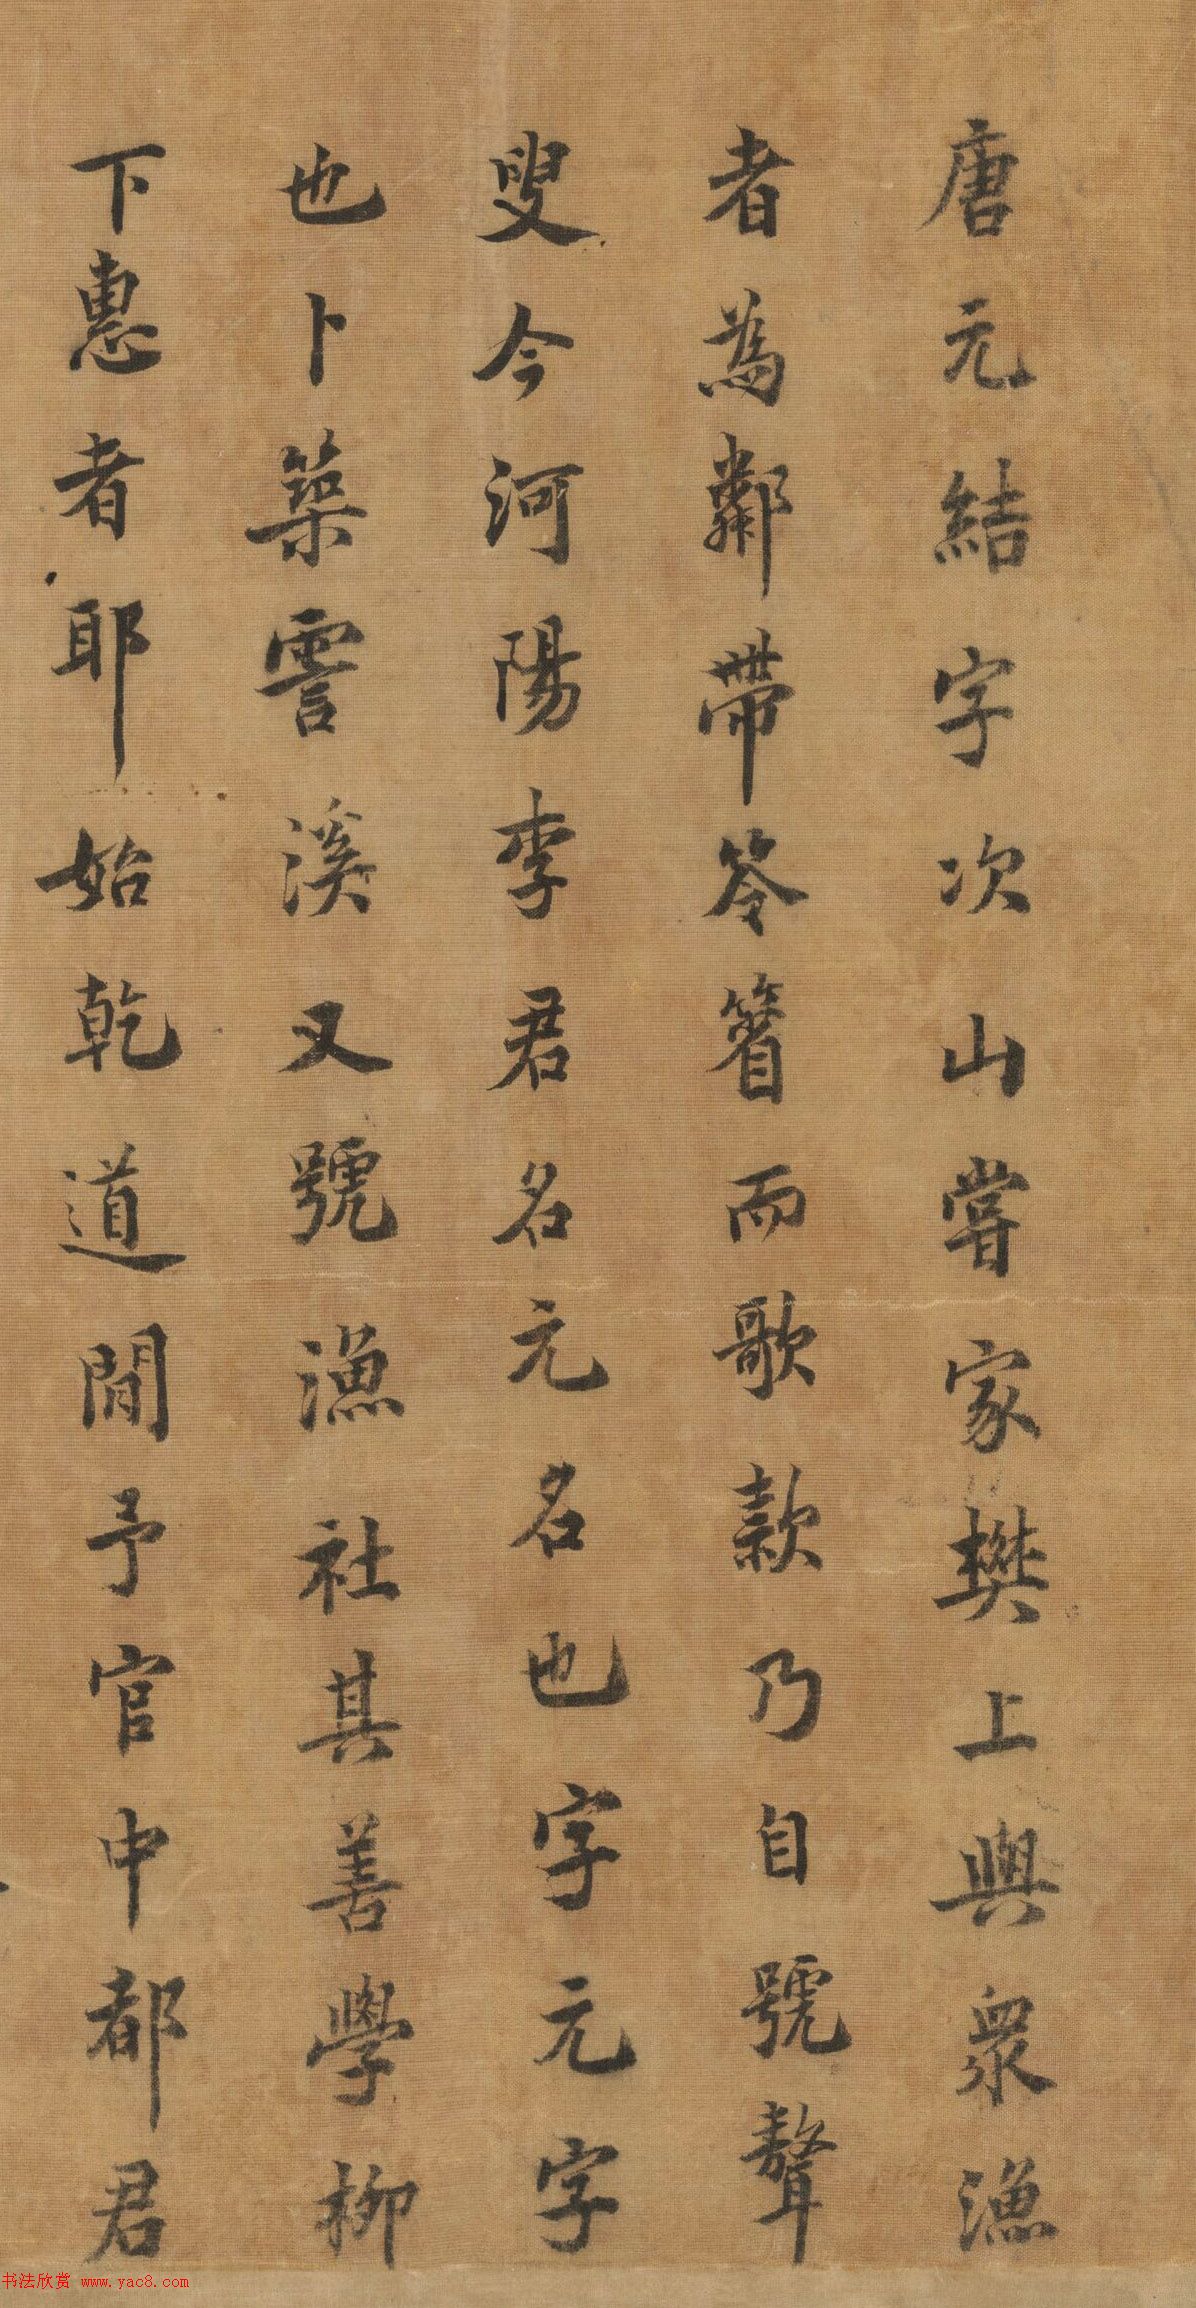 唐元結字次山嘗家樊上與衆漁
者為鄰帶笭箵而歌款乃自號聱
叟今河陽李君名元名也字元字
也卜築霅溪又號漁社其善學柳
下惠者耶始乾道間予官中都君
书法欣赏 www.yac8.com